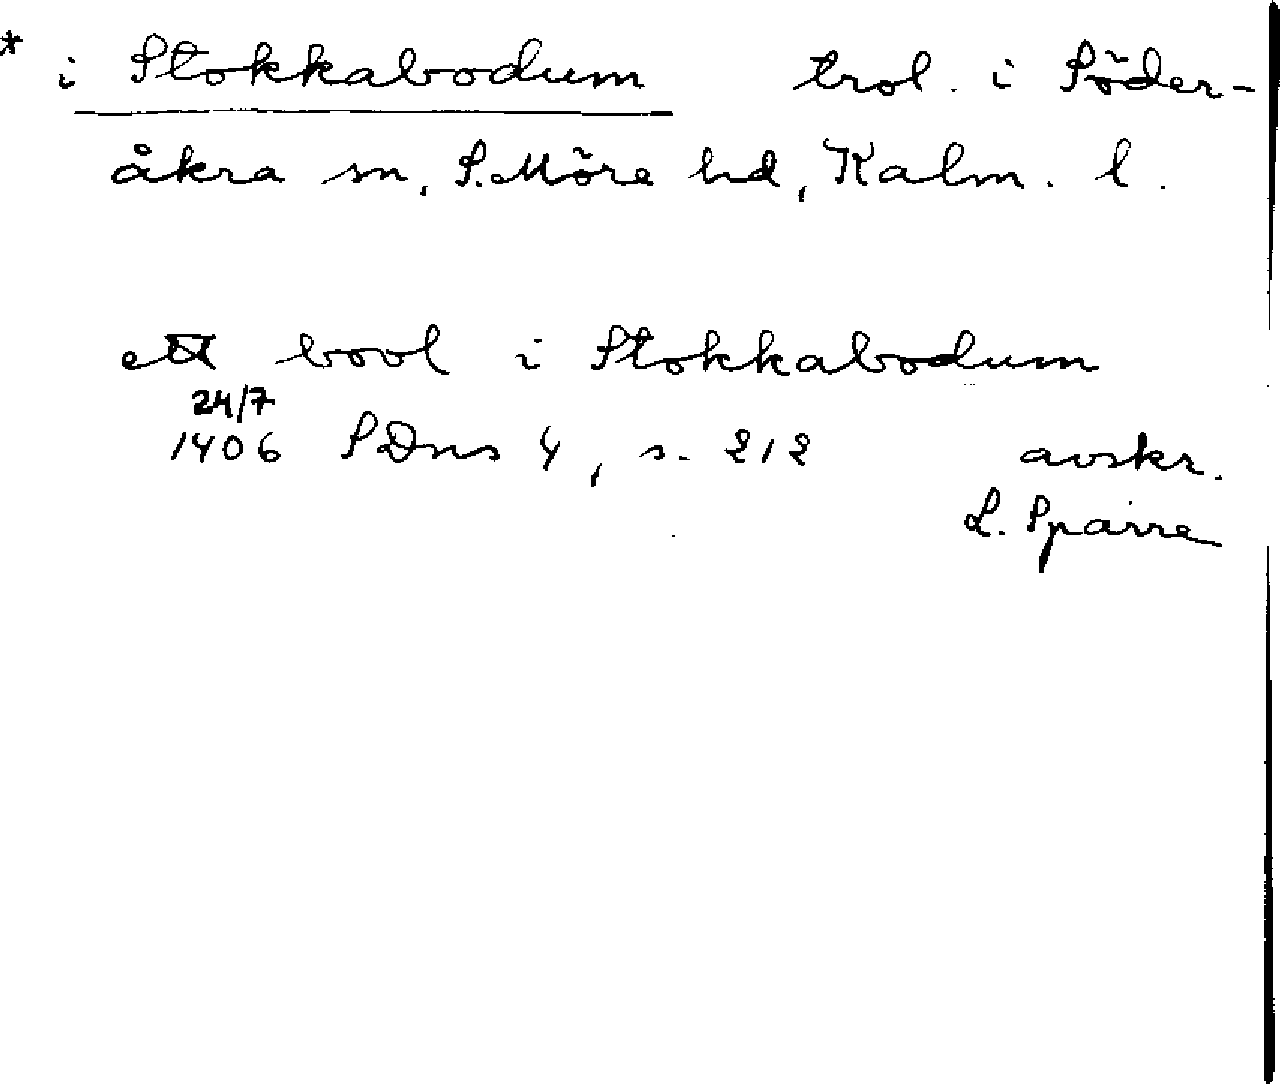 * i Stokkabodum trol. i Söder-
åkra sn, S. Möre hd, Kalm. l.
ett bool i Stokkabodum
24/7
1406 SDns 4, s. 212 avskr.
L. Sparre